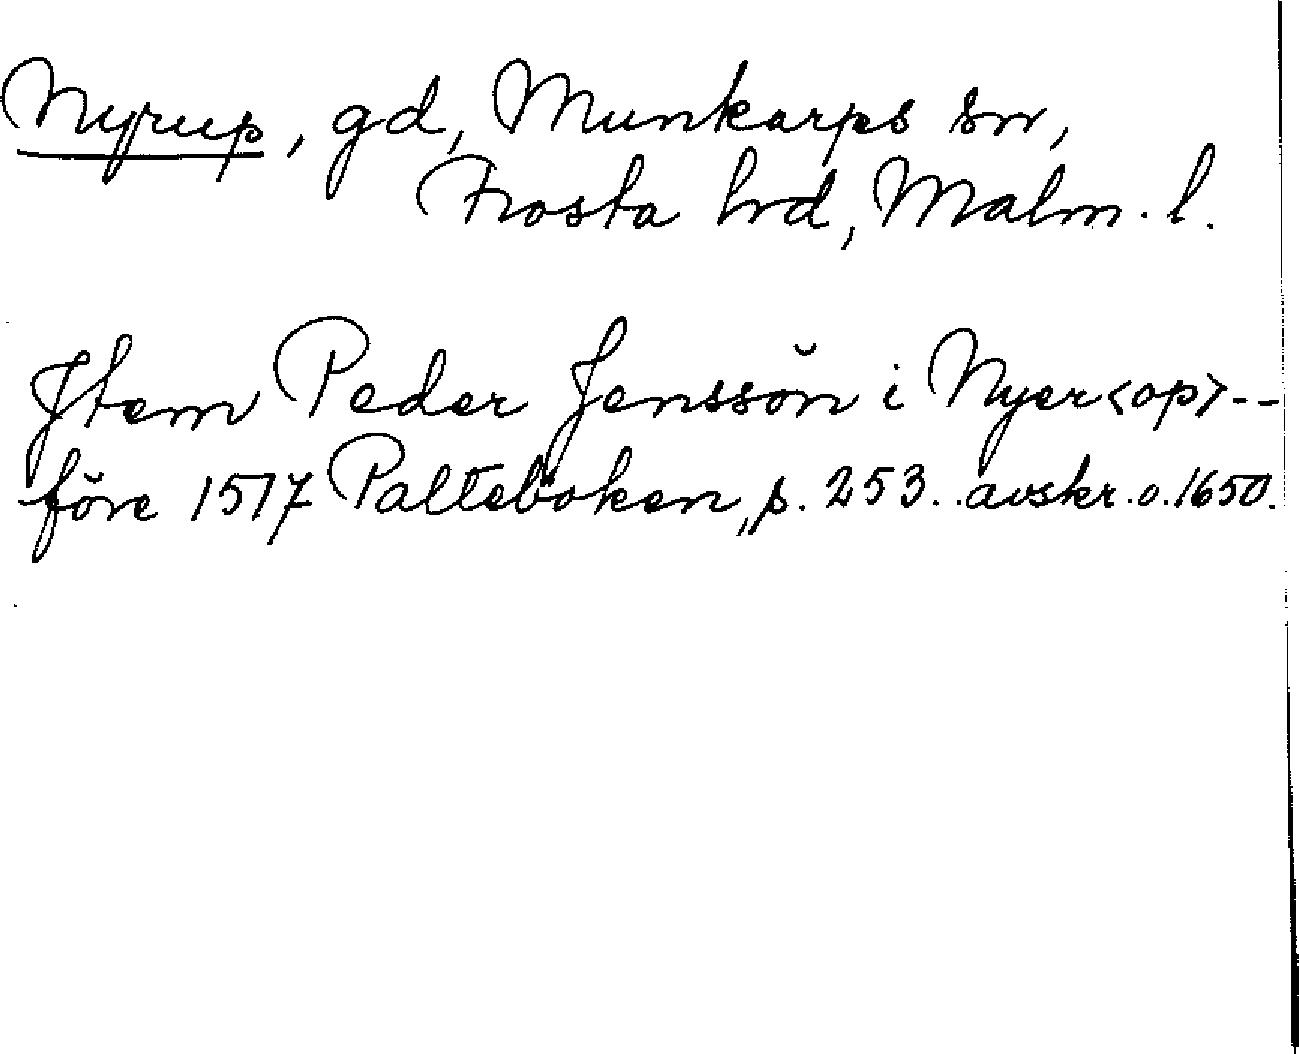 Nyrup, gd, Munkarps sn,
Frosta hrd, Malm. l.
Jtem Peder Jenssön i Nyer<op>--
före 1517 Palteboken, p. 253. avskr. o. 1650.